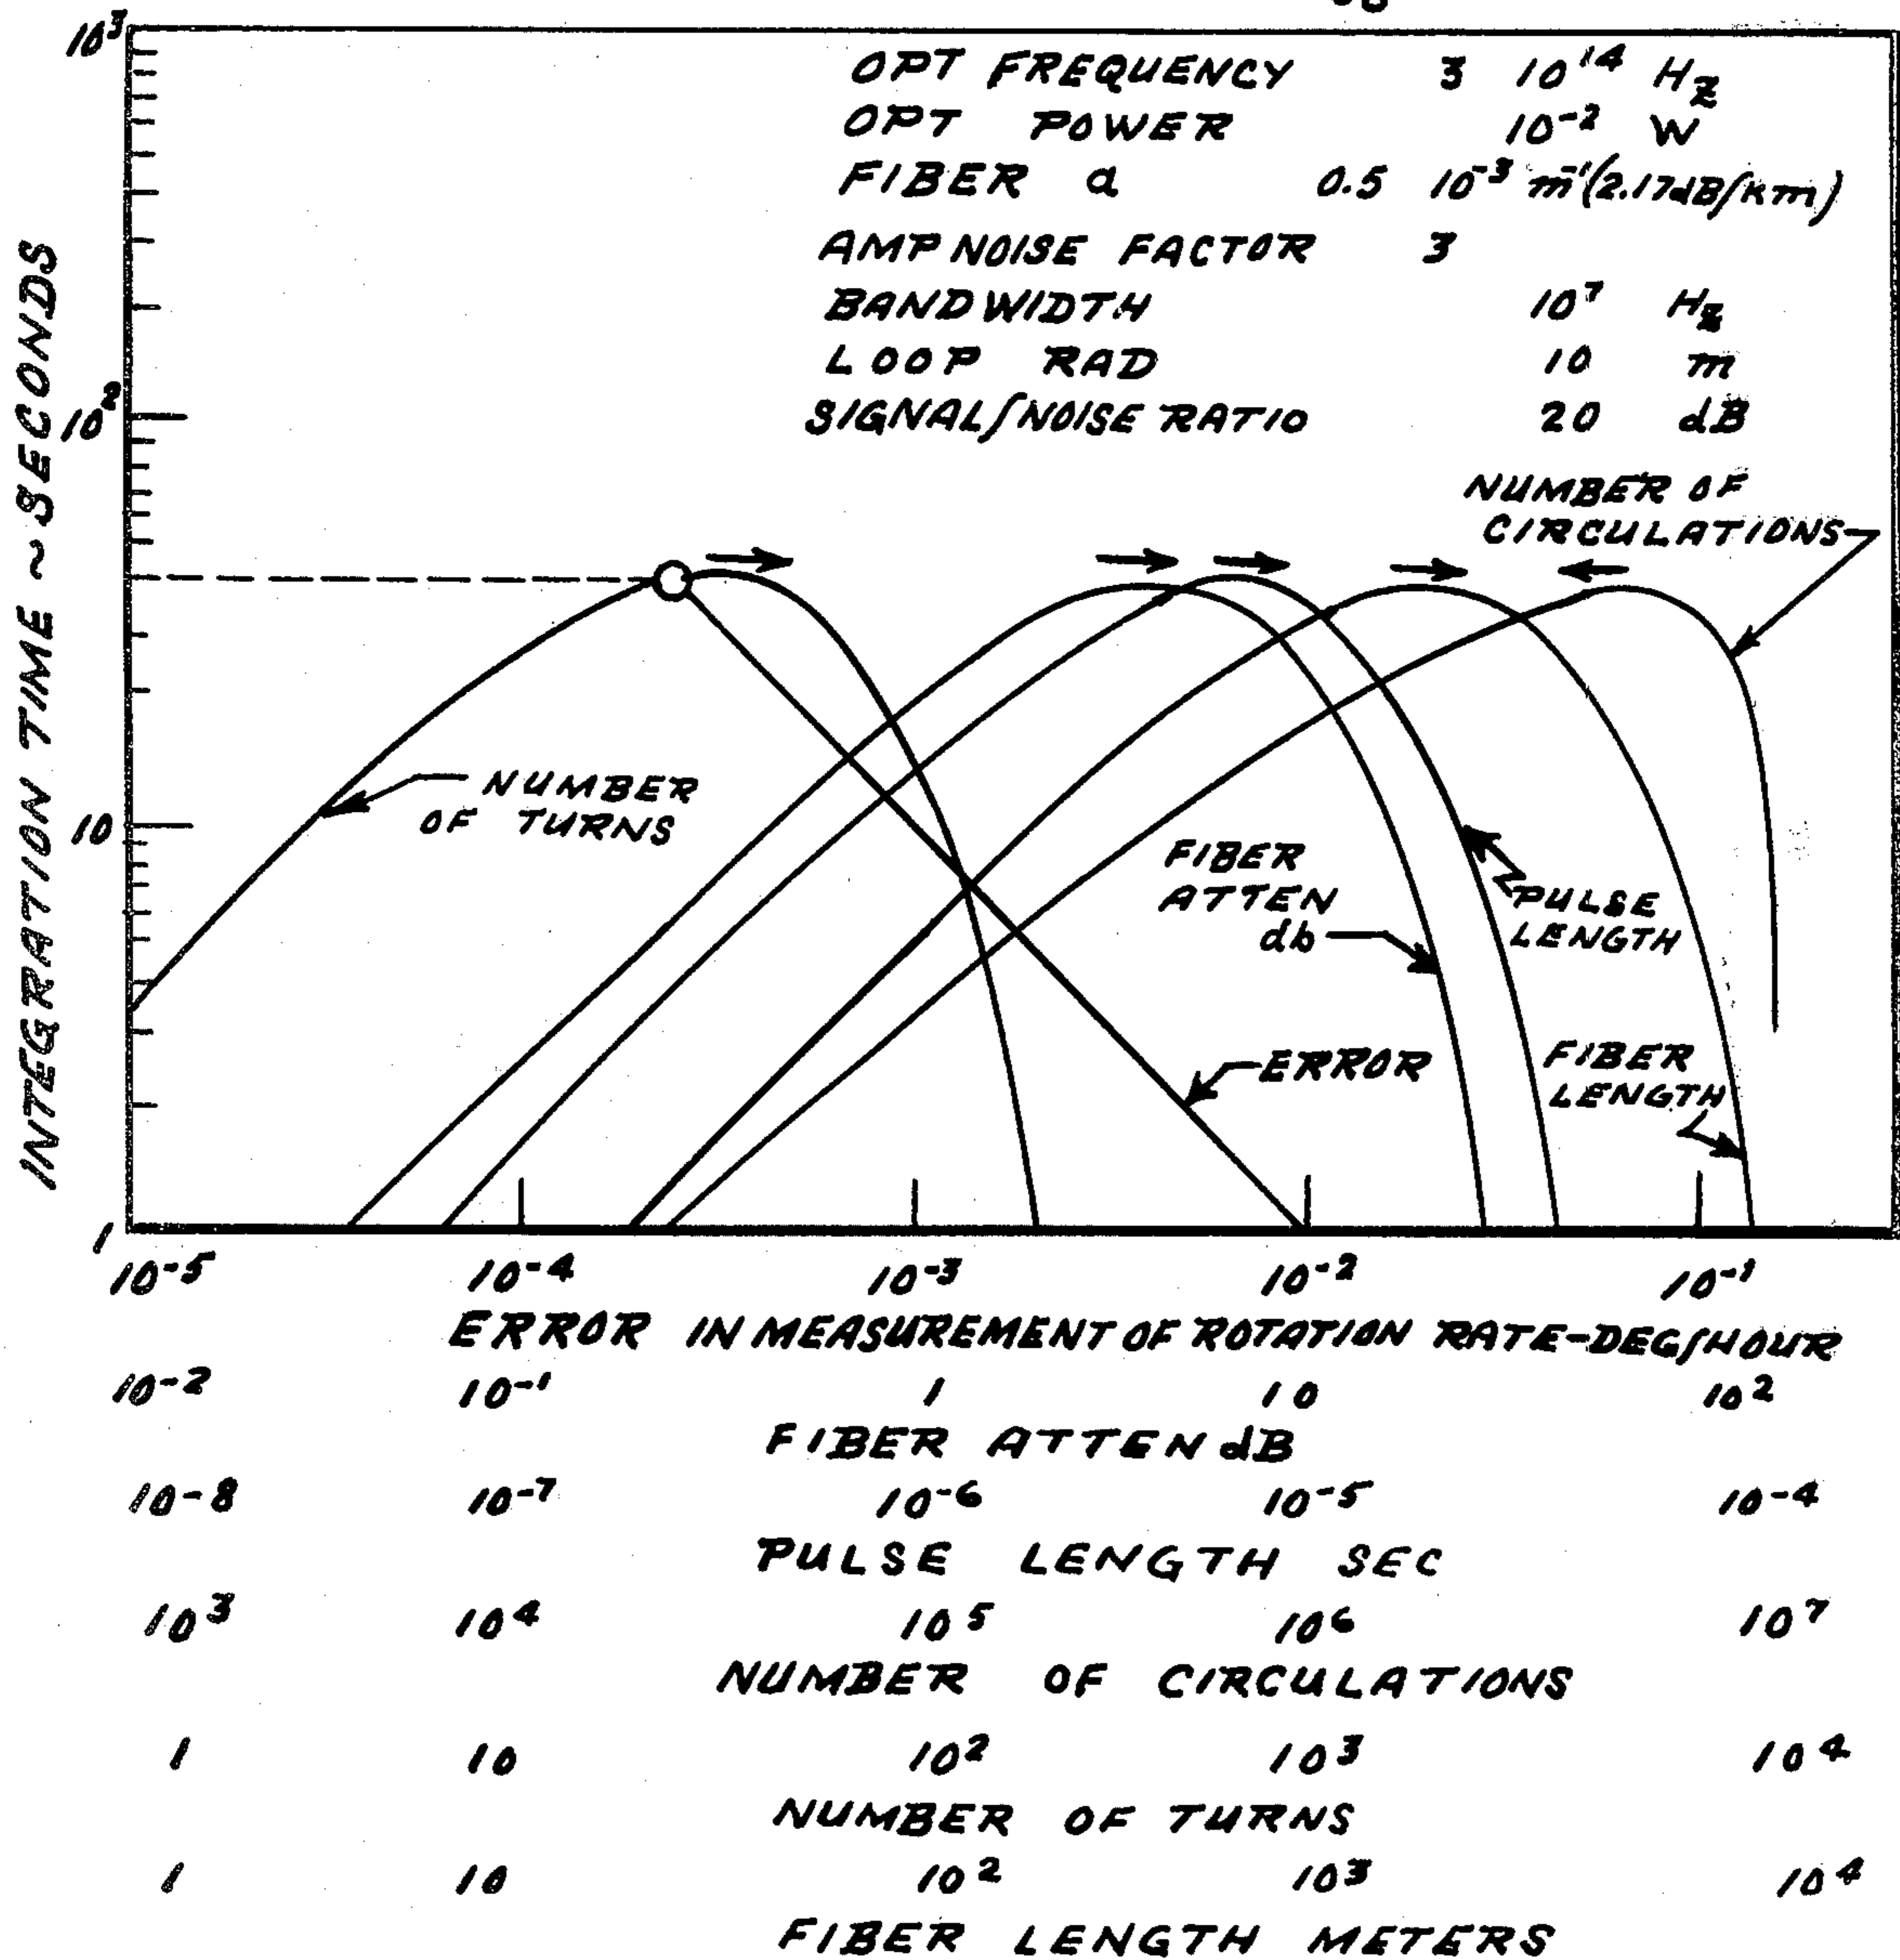 10³
OPT FREQUENCY 3 10¹⁴ Hz
OPT POWER 10⁻² W
FIBER a 0.5 10⁻³ m⁻¹(2.17dB/Km)
AMP NOISE FACTOR 3
BANDWIDTH 10⁷ Hz
LOOP RAD 10 m
SIGNAL/NOISE RATIO 20 dB
10²
NUMBER OF
CIRCULATIONS
INTEGRATION TIME ~ SECONDS
NUMBER
OF TURNS
10
FIBER
ATTEN
db
PULSE
LENGTH
ERROR
FIBER
LENGTH
1
10⁻⁵ 10⁻⁴ 10⁻³ 10⁻² 10⁻¹
ERROR IN MEASUREMENT OF ROTATION RATE-DEG/HOUR
10⁻² 10⁻¹ 1 10 10²
FIBER ATTEN dB
10⁻⁸ 10⁻⁷ 10⁻⁶ 10⁻⁵ 10⁻⁴
PULSE LENGTH SEC
10³ 10⁴ 10⁵ 10⁶ 10⁷
NUMBER OF CIRCULATIONS
1 10 10² 10³ 10⁴
NUMBER OF TURNS
1 10 10² 10³ 10⁴
FIBER LENGTH METERS